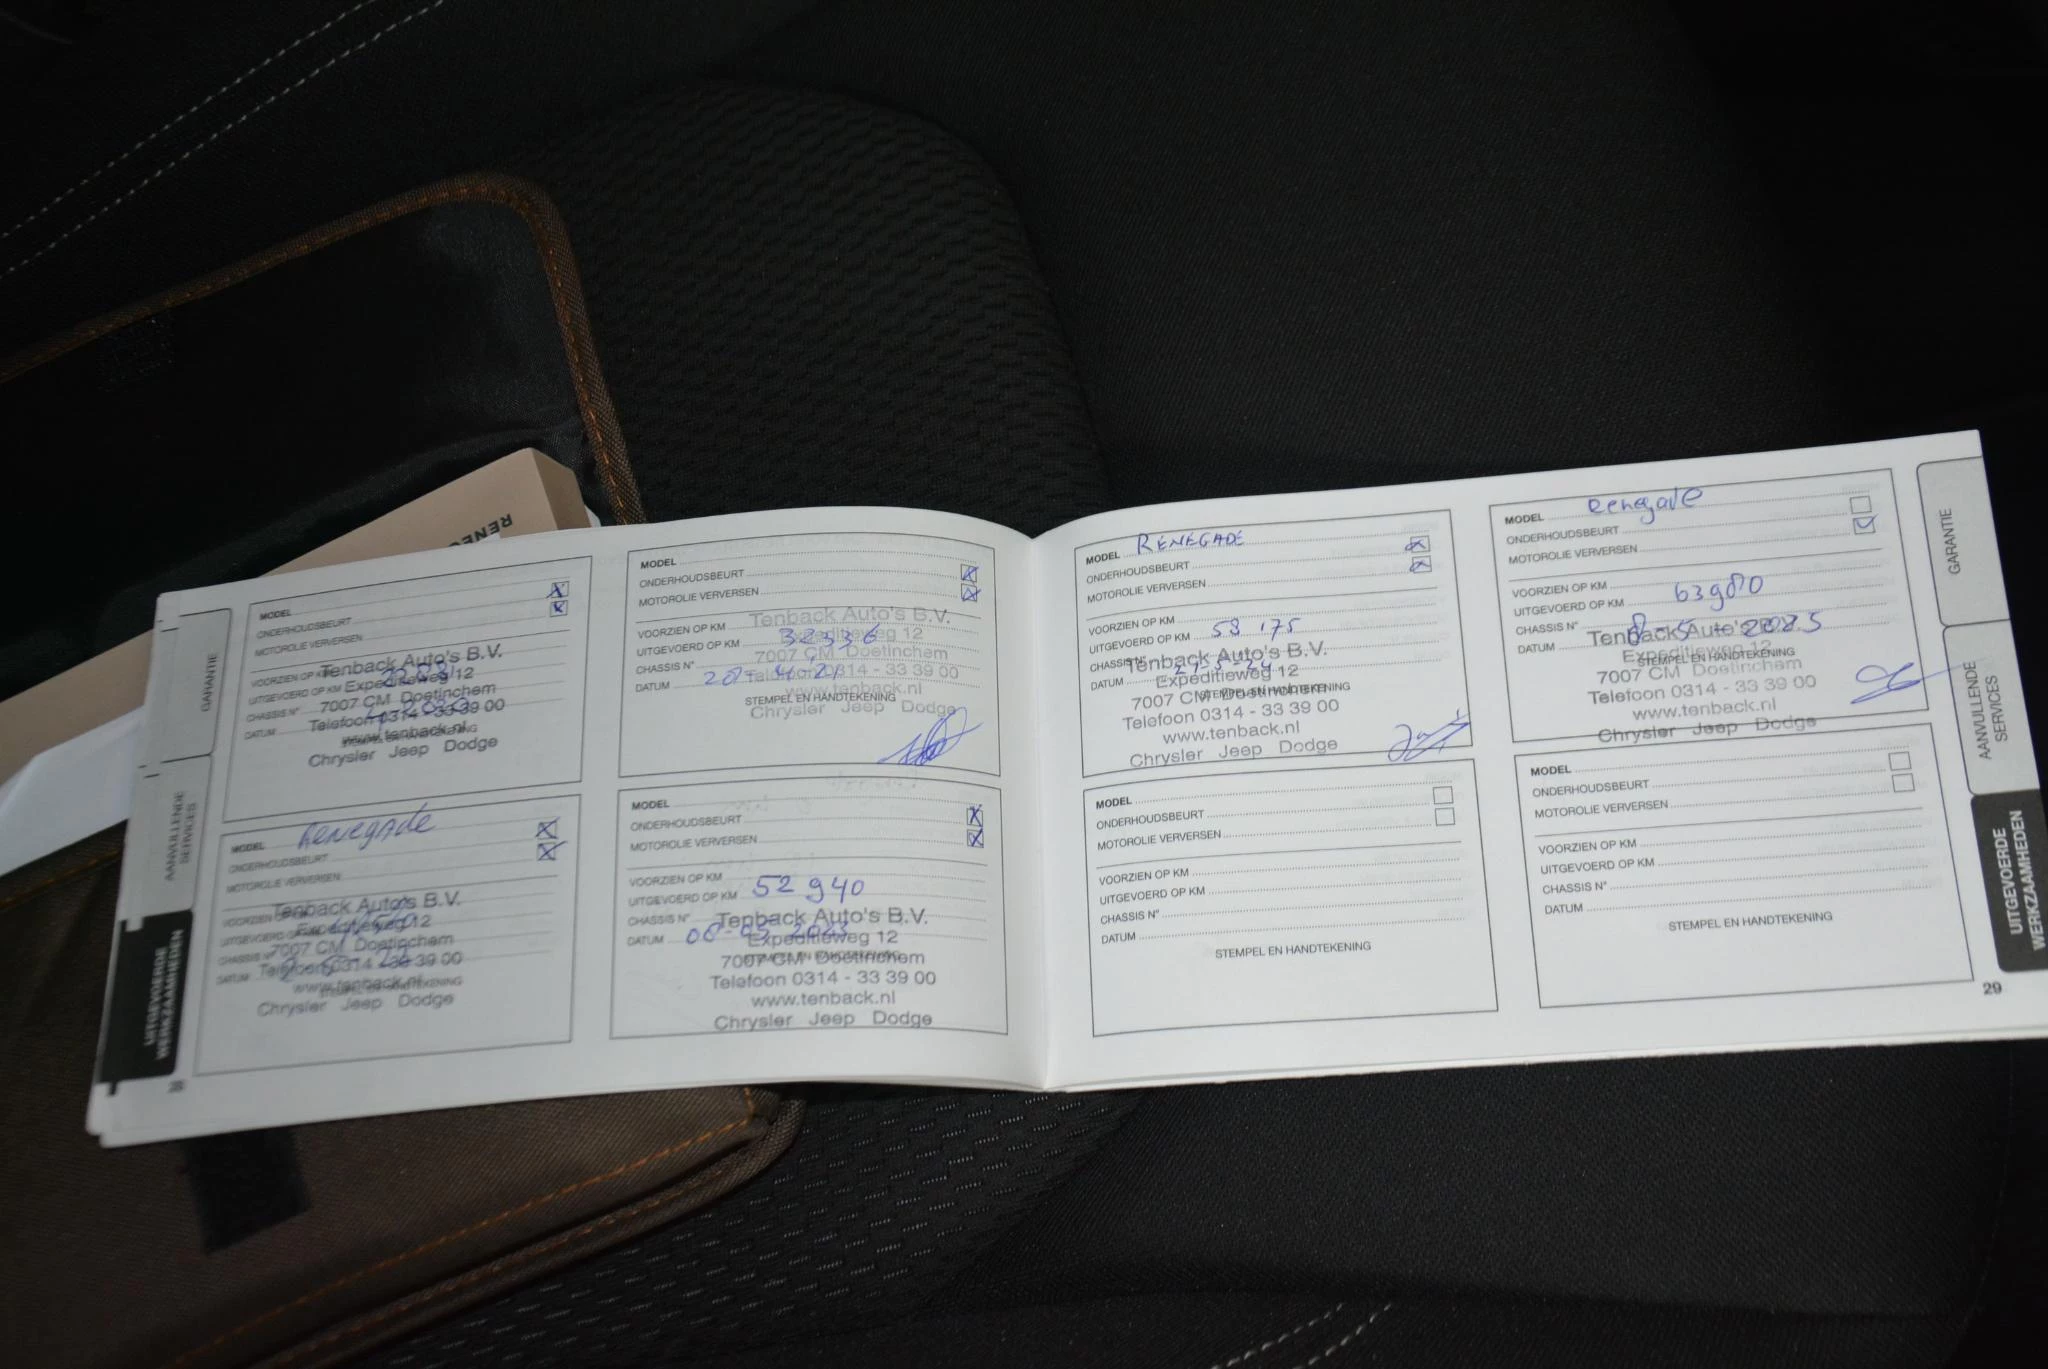 RENEG
GARANTIE
AANVULLENDE
SERVICES
UITGEVOERDE
WERKZAAMHEDEN
28
MODEL
ONDERHOUDSBEURT
MOTOROLIE VERVERSEN
VOORZIEN OP KM
UITGEVOERD OP KM
CHASSIS N°
DATUM
Tenback Auto's B.V.
Expeditieweg 12
7007 CM Doetinchem
Telefoon 0314 - 33 39 00
www.tenback.nl
Chrysler Jeep Dodge
MODEL
ONDERHOUDSBEURT
MOTOROLIE VERVERSEN
VOORZIEN OP KM
UITGEVOERD OP KM 32536
CHASSIS N°
DATUM
STEMPEL EN HANDTEKENING
Tenback Auto's B.V.
Expeditieweg 12
7007 CM Doetinchem
Telefoon 0314 - 33 39 00
www.tenback.nl
Chrysler Jeep Dodge
MODEL Renegade
ONDERHOUDSBEURT
MOTOROLIE VERVERSEN
VOORZIEN
UITGEVOERD
CHASSIS N°
DATUM
Tenback Auto's B.V.
Expeditieweg 12
7007 CM Doetinchem
Telefoon 0314 - 33 39 00
www.tenback.nl
Chrysler Jeep Dodge
MODEL
ONDERHOUDSBEURT
MOTOROLIE VERVERSEN
VOORZIEN OP KM
UITGEVOERD OP KM 52940
CHASSIS N°
DATUM 00-05 2023
Tenback Auto's B.V.
Expeditieweg 12
7007 CM Doetinchem
Telefoon 0314 - 33 39 00
www.tenback.nl
Chrysler Jeep Dodge
MODEL RENEGADE
ONDERHOUDSBEURT
MOTOROLIE VERVERSEN
VOORZIEN OP KM
UITGEVOERD OP KM 58 175
CHASSIS N°
DATUM 21-5-24
STEMPEL EN HANDTEKENING
Tenback Auto's B.V.
Expeditieweg 12
7007 CM Doetinchem
Telefoon 0314 - 33 39 00
www.tenback.nl
Chrysler Jeep Dodge
MODEL Renegade
ONDERHOUDSBEURT
MOTOROLIE VERVERSEN
VOORZIEN OP KM
UITGEVOERD OP KM 63980
CHASSIS N°
DATUM 8-5-2025
STEMPEL EN HANDTEKENING
Tenback Auto's B.V.
Expeditieweg 12
7007 CM Doetinchem
Telefoon 0314 - 33 39 00
www.tenback.nl
Chrysler Jeep Dodge
MODEL
ONDERHOUDSBEURT
MOTOROLIE VERVERSEN
VOORZIEN OP KM
UITGEVOERD OP KM
CHASSIS N°
DATUM
STEMPEL EN HANDTEKENING
MODEL
ONDERHOUDSBEURT
MOTOROLIE VERVERSEN
VOORZIEN OP KM
UITGEVOERD OP KM
CHASSIS N°
DATUM
STEMPEL EN HANDTEKENING
GARANTIE
AANVULLENDE
SERVICES
UITGEVOERDE
WERKZAAMHEDEN
29